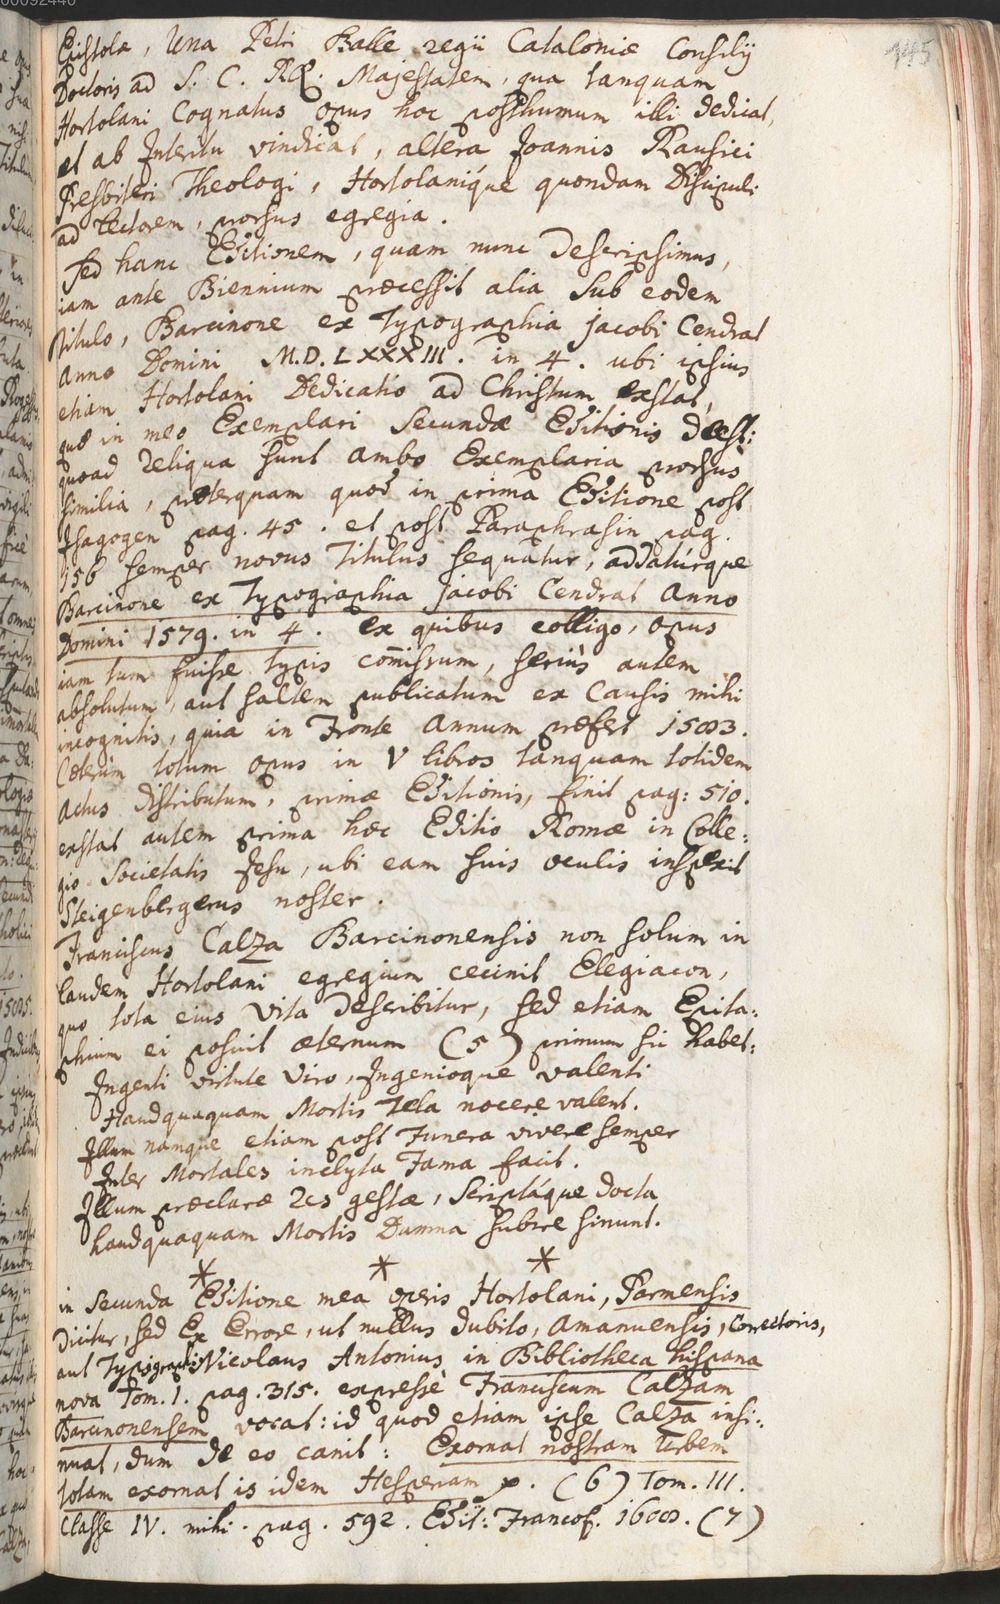 145
Epistolæ, Una Petri Balle regii Cataloniæ Consilij
Doctoris ad S. C. RQ. Majestatem, qua tanquam
Hortolani Cognatus opus hoc posthumum illi dedicat,
et ab Interitu vindicat, altera Joannis Rausici
Presbiteri Theologi, Hortolanique quondam Discipuli
ad Lectorem, prorsus egregia.
Sed hanc Editionem, quam nunc Descripsimus,
iam ante Biennium præcessit alia sub eodem
titulo, Barcinone ex Typographia jacobi Cendrat
Anno Domini M.D.LXXXIII. in 4. ubi ipsius
etiam Hortolani Dedicatio ad Christum exstat,
quæ in meo Exemplari Secundæ Editionis deest:
quoad reliqua sunt ambo Exemplaria prorsus
similia, præterquam quod in prima Editione post
Isagogen pag. 45. et post Paraphrasin pag.
156 semper novus Titulus sequatur, addatúrque
Barcinone ex Typographia jacobi Cendrat Anno
Domini 1579. in 4. ex quibus colligo, opus
iam tum fuisse typis com̄issum, seriùs autem
absolutum, aut saltem publicatum ex Causis mihi
incognitis, quia in Fronte Annum præfert 1583.
Cæterùm totum opus in V libros tanquam totidem
Actus distributum, primæ Editionis, finit pag: 510.
exstat autem prima hæc Editio Romæ in Colle:
gio Societatis Jesu, ubi eam suis oculis inspexit
Steigenbergerus noster.
Franciscus Calza Barcinonensis non solum in
laudem Hortolani egregium cecinit Elegiacon,
quo tota eius Vita Describitur, sed etiam Epita:
phium ei posuit æternum (5) primum sic habet:
Ingenti virtute Viro, Ingenioque valenti
Haudquaquam Mortis Tela nocere valent.
Illum namque etiam post Funera vivere semper
Inter Mortales inclyta Fama facit.
Illum præclaræ Res gestæ, Scriptáque docta
haudquaquam Mortis Damna subire sinunt.
* * *
in Secunda Editione mea operis Hortolani, Parmensis
Dicitur, sed Ex Errore, ut nullus dubito, Amanuensis, Correctoris,
aut Typographi. Nicolaus Antonius in Bibliotheca hispana
nova Tom. 1. pag. 315. expressè Franciscum Calzam
Barcinonensem vocat: id quod etiam ipse Calza insi:
nuat, dum de eo canit: Exornat nostram Urbem
totam exornat is idem Hesperiam . (6) Tom. III.
Classe IV. mihi. pag. 592. Edit: Francof. 1608. (7)